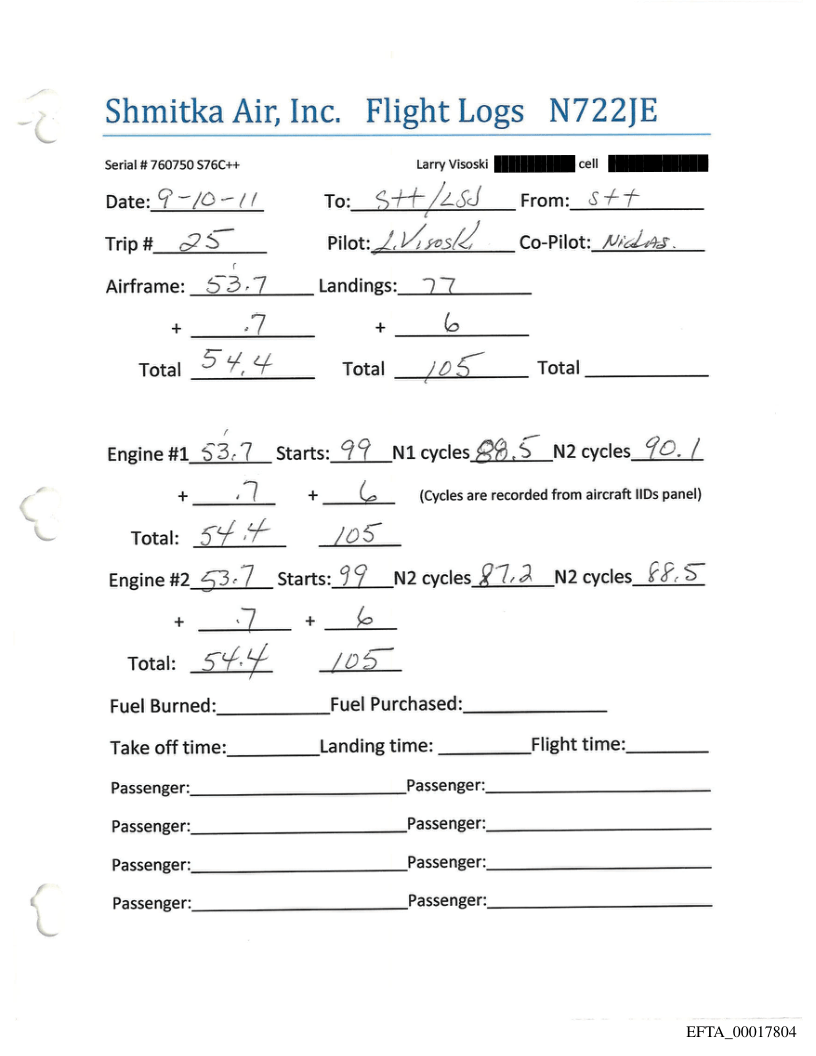 Shmitka Air, Inc. Flight Logs N722JE
Serial # 760750 S76C++ Larry Visoski cell
Date: 9-10-11 To: Stt/LSJ From: Stt
Trip # 25 Pilot: L.Visoski Co-Pilot:
Airframe: 53.7 Landings: 77
+ .7 + 6
Total 54.4 Total 105 Total
Engine #1 53.7 Starts: 99 N1 cycles 88.5 N2 cycles 90.1
+ .7 + 6 (Cycles are recorded from aircraft IIDs panel)
Total: 54.4 105
Engine #2 53.7 Starts: 99 N2 cycles 87.2 N2 cycles 88.5
+ .7 + 6
Total: 54.4 105
Fuel Burned: Fuel Purchased:
Take off time: Landing time: Flight time:
Passenger: Passenger:
Passenger: Passenger:
Passenger: Passenger:
Passenger: Passenger:
EFTA_00017804